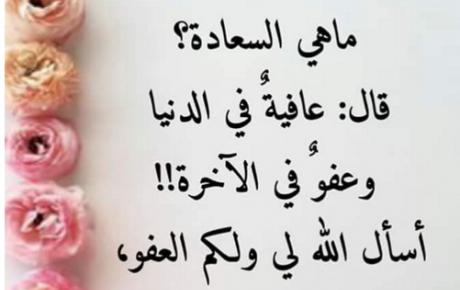 ماهي السعادة؟
قال: عافيةٌ في الدنيا
وعفوٌ في الآخرة!!
أسأل الله لي ولكم العفو،